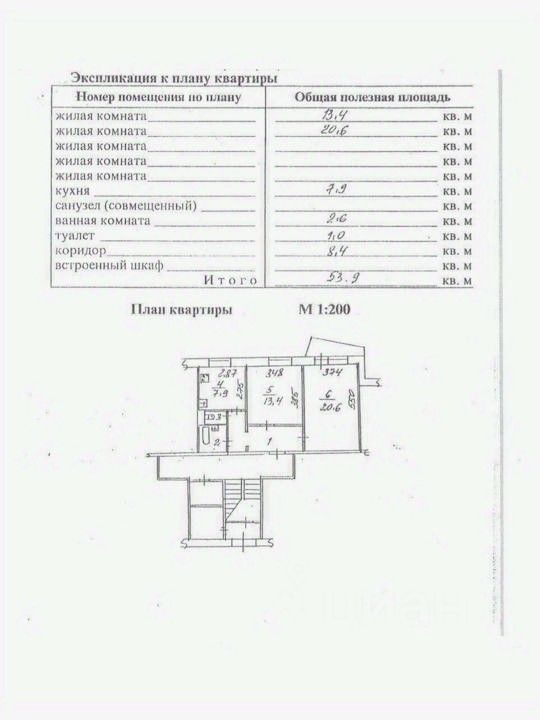 Экспликация к плану квартиры
Номер помещения по плану Общая полезная площадь
жилая комната 13,4 кв. м
жилая комната 20,6 кв. м
жилая комната кв. м
жилая комната кв. м
жилая комната кв. м
кухня 7,9 кв. м
санузел (совмещенный) кв. м
ванная комната 2,6 кв. м
туалет 1,0 кв. м
коридор 8,4 кв. м
встроенный шкаф кв. м
Итого 53.9 кв. м
План квартиры М 1:200
287 348 374
4 7,9 275
5 13,4 385
6 20.6 550
3
2 1
циан